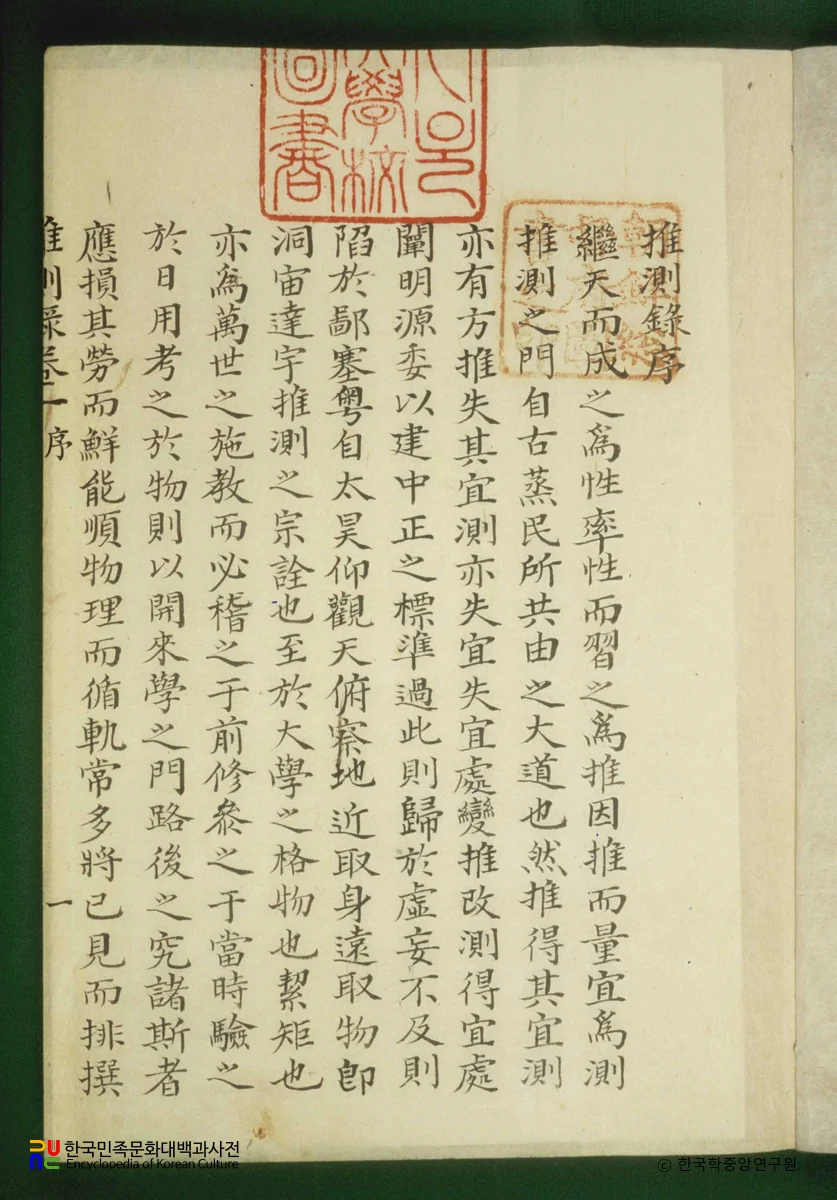 推測錄序
繼天而成之爲性率性而習之爲推因推而量宜爲測
推測之門自古蒸民所共由之大道也然推得其宜測
亦有方推失其宜測亦失宜失宜處變推改測得宜處
闡明源委以建中正之標準過此則歸於虛妄不及則
陷於鄙塞粤自太昊仰觀天俯察地近取身遠取物卽
洞宙達宇推測之宗詮也至於大學之格物也絜矩也
亦爲萬世之施教而必稽之于前修叅之于當時驗之
於日用考之於物則以開來學之門路後之究諸斯者
應損其勞而鮮能順物理而循軌常多將已見而排撰
推測錄卷一 序 一
學校
圖書
한국민족문화대백과사전
Encyclopedia of Korean Culture
© 한국학중앙연구원